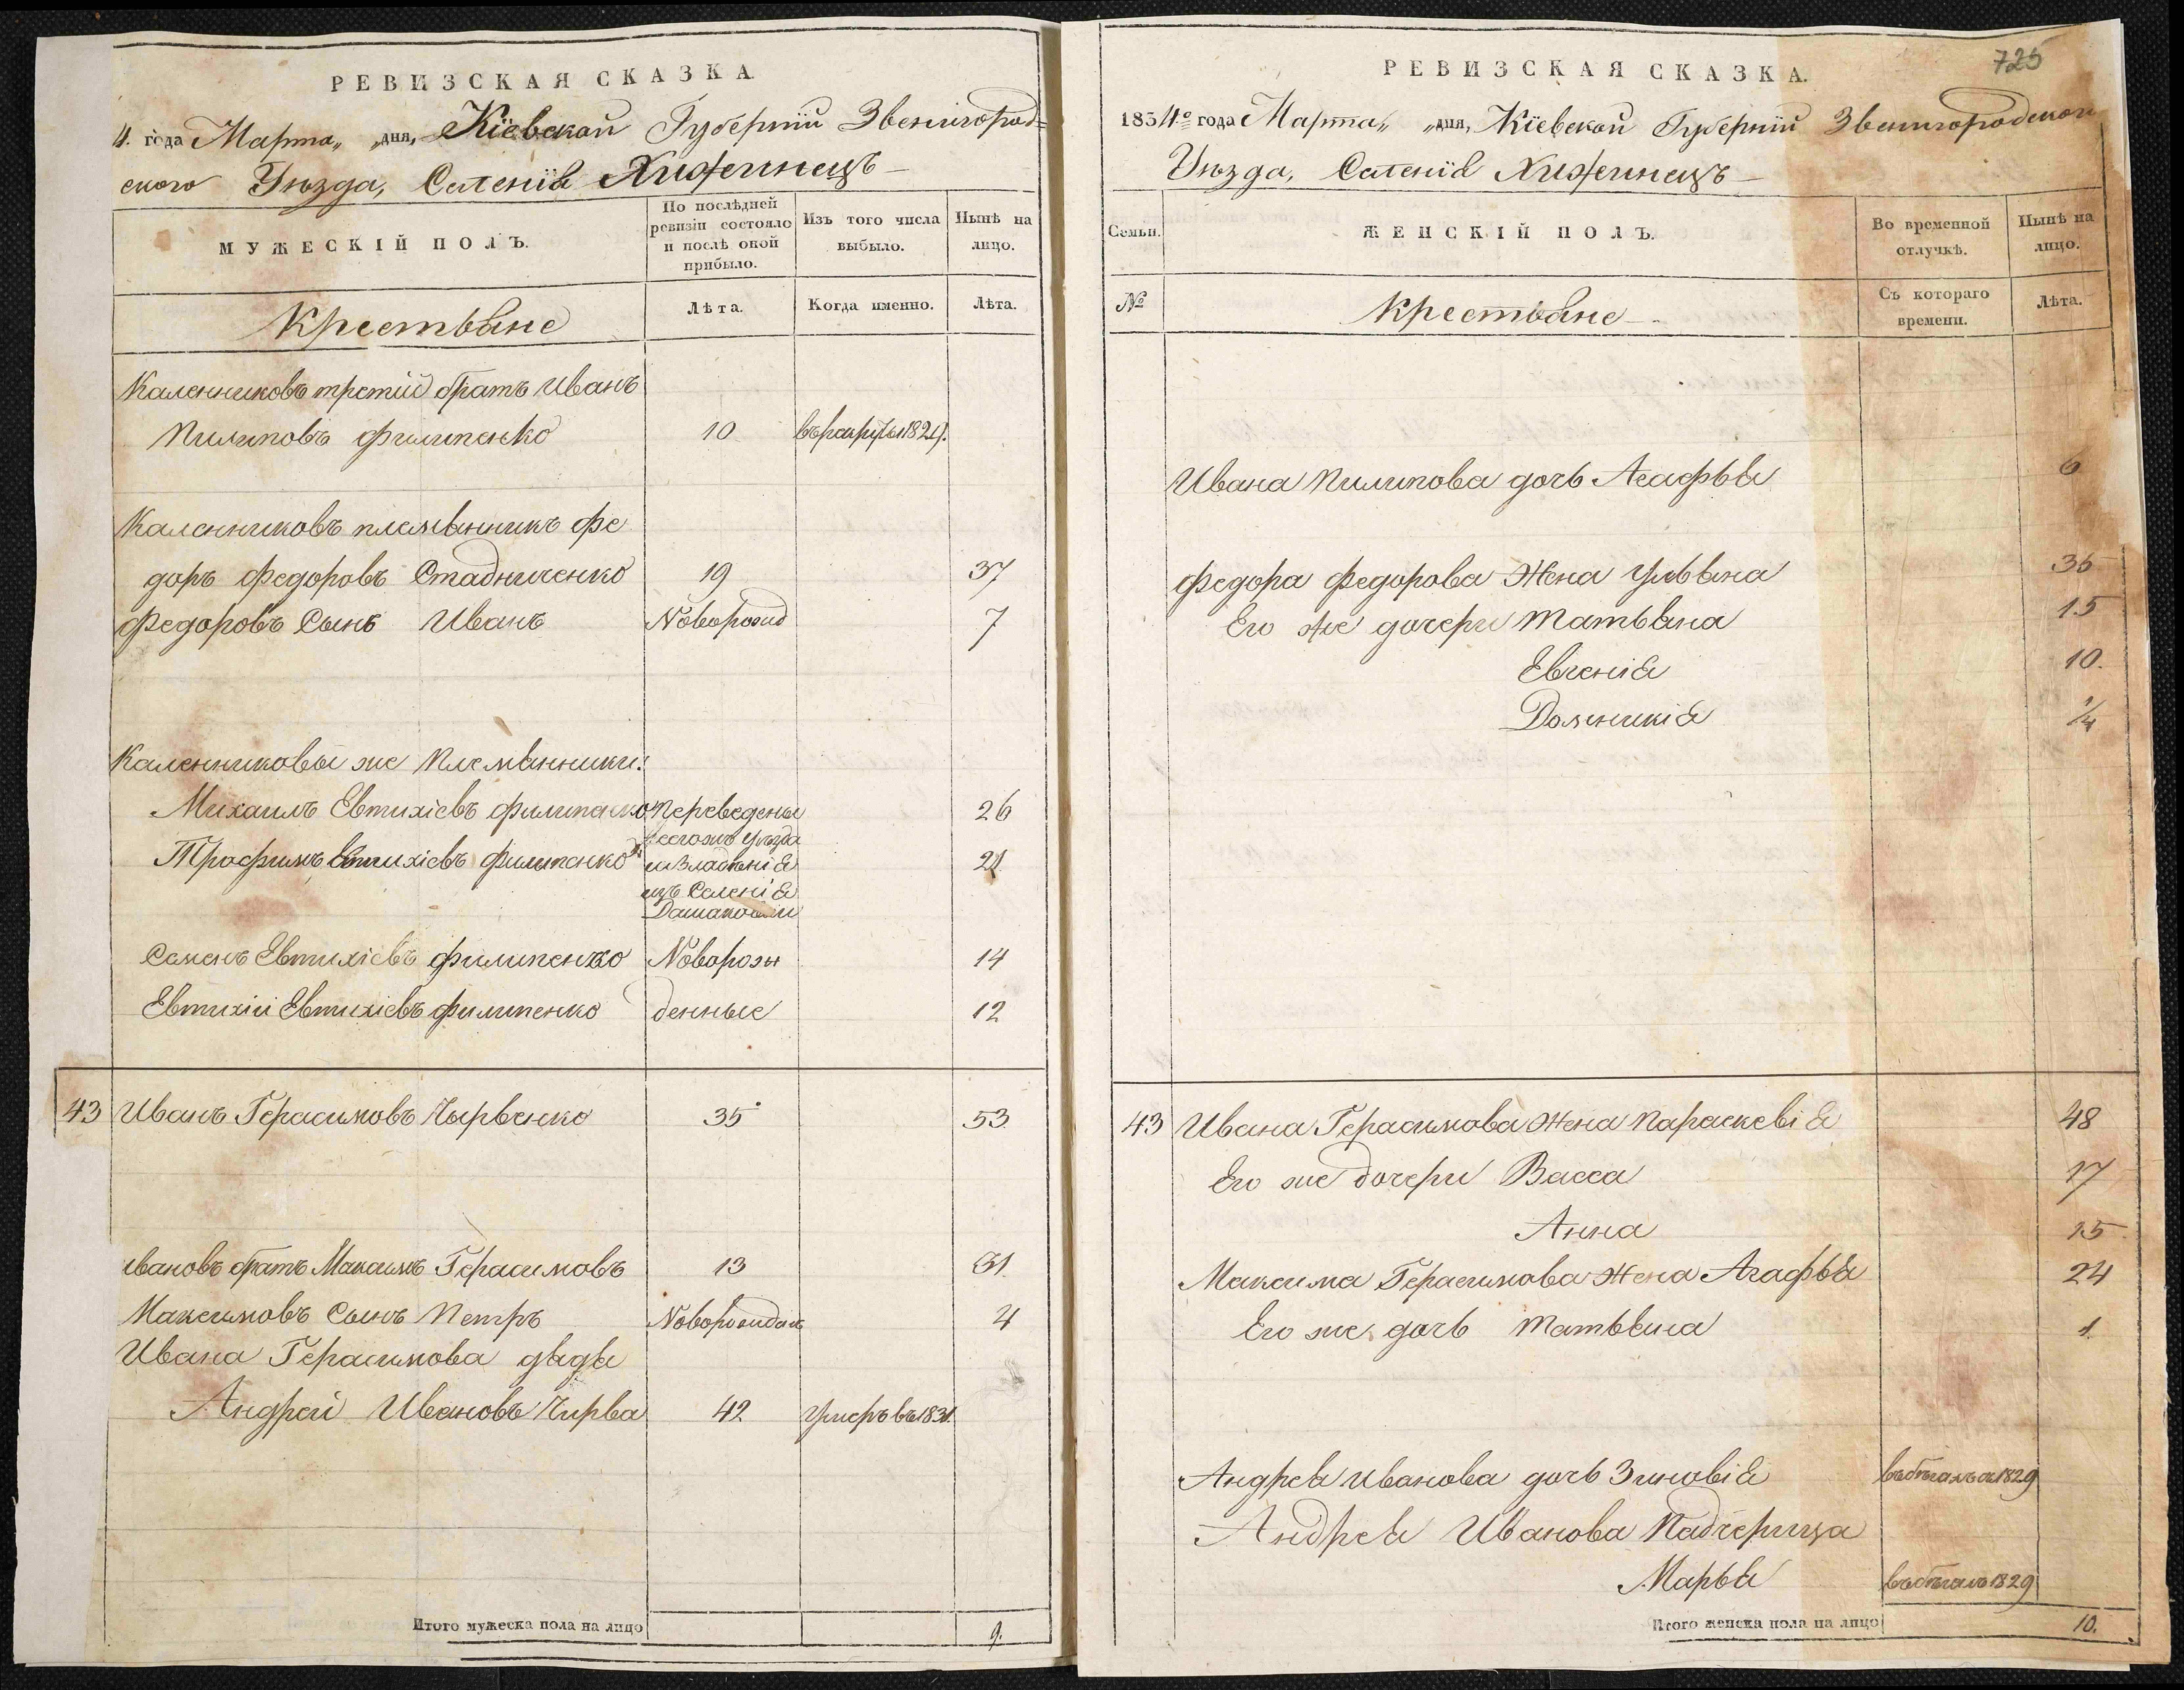 РЕВИЗСКАЯ СКАЗКА
4. года Марта „ „дня, Кіевской Губерніи Звенигород=
ского Уѣзда, Селенія Хижинецъ
МУЖЕСКІЙ ПОЛЪ.
По послѣдней
ревизіи состояло
и послѣ оной
прибыло.
Изъ того числа
выбыло.
Нынѣ на
лицо.
Крестьяне
Лѣта.
Когда именно.
Лѣта.
Каленниковъ третій братъ Иванъ
Пилиповъ Филипенко 10 въ рекруты 1824.
Каленниковъ племянникъ Фе
доръ Федоровъ Стадниченко 19 37
Федоровъ Сынъ Иванъ Новорожд 7
Каленниковы же Племянники:
Михаилъ Евтихіевъ Филипенко Переведены 26
сегожъ Уѣзда
Трофимъ Евтихіевъ Филипенко владѣнія 21
изъ Селенія
Семенъ Евтихіевъ Филипенко Новорож 14
Евтихій Евтихіевъ Филипенко денные 12
43 Иванъ Герасимовъ Чырвенко 35 53
Ивановъ братъ Максимъ Герасимовъ 13 31
Максимовъ Сынъ Петръ Новорожден 4
Ивана Герасимова дядя
Андрей Ивановъ Чирва 42 Умеръ въ 1831.
Итого мужеска пола на лицо 9.
725
РЕВИЗСКАЯ СКАЗКА.
1834го года Марта „ „дня, Кіевской Губерніи Звенигородской
Уѣзда, Селенія Хижинецъ
Семьи.
ЖЕНСКІЙ ПОЛЪ.
Во временной
отлучкѣ.
Нынѣ на
лицо.
№
Крестьяне
Съ котораго
времени.
Лѣта.
Ивана Пилипова дочь Агафья 6
Федора Федорова Жена Ульяна 35
Его же дочери Татьяна 15
Евгенія 10.
Домникія 1/4
43 Ивана Герасимова Жена Параскевія 48
Его же дочери Васса 17
Анна 15
Максима Герасимова Жена Агафья 24
Его же дочь Татьяна 1.
Андрея Иванова дочь Зиновія въ бѣгахъ съ 1829
Андрея Иванова Падчерица
Марья въ бѣгахъ 1829
Итого женска пола на лицо 10.